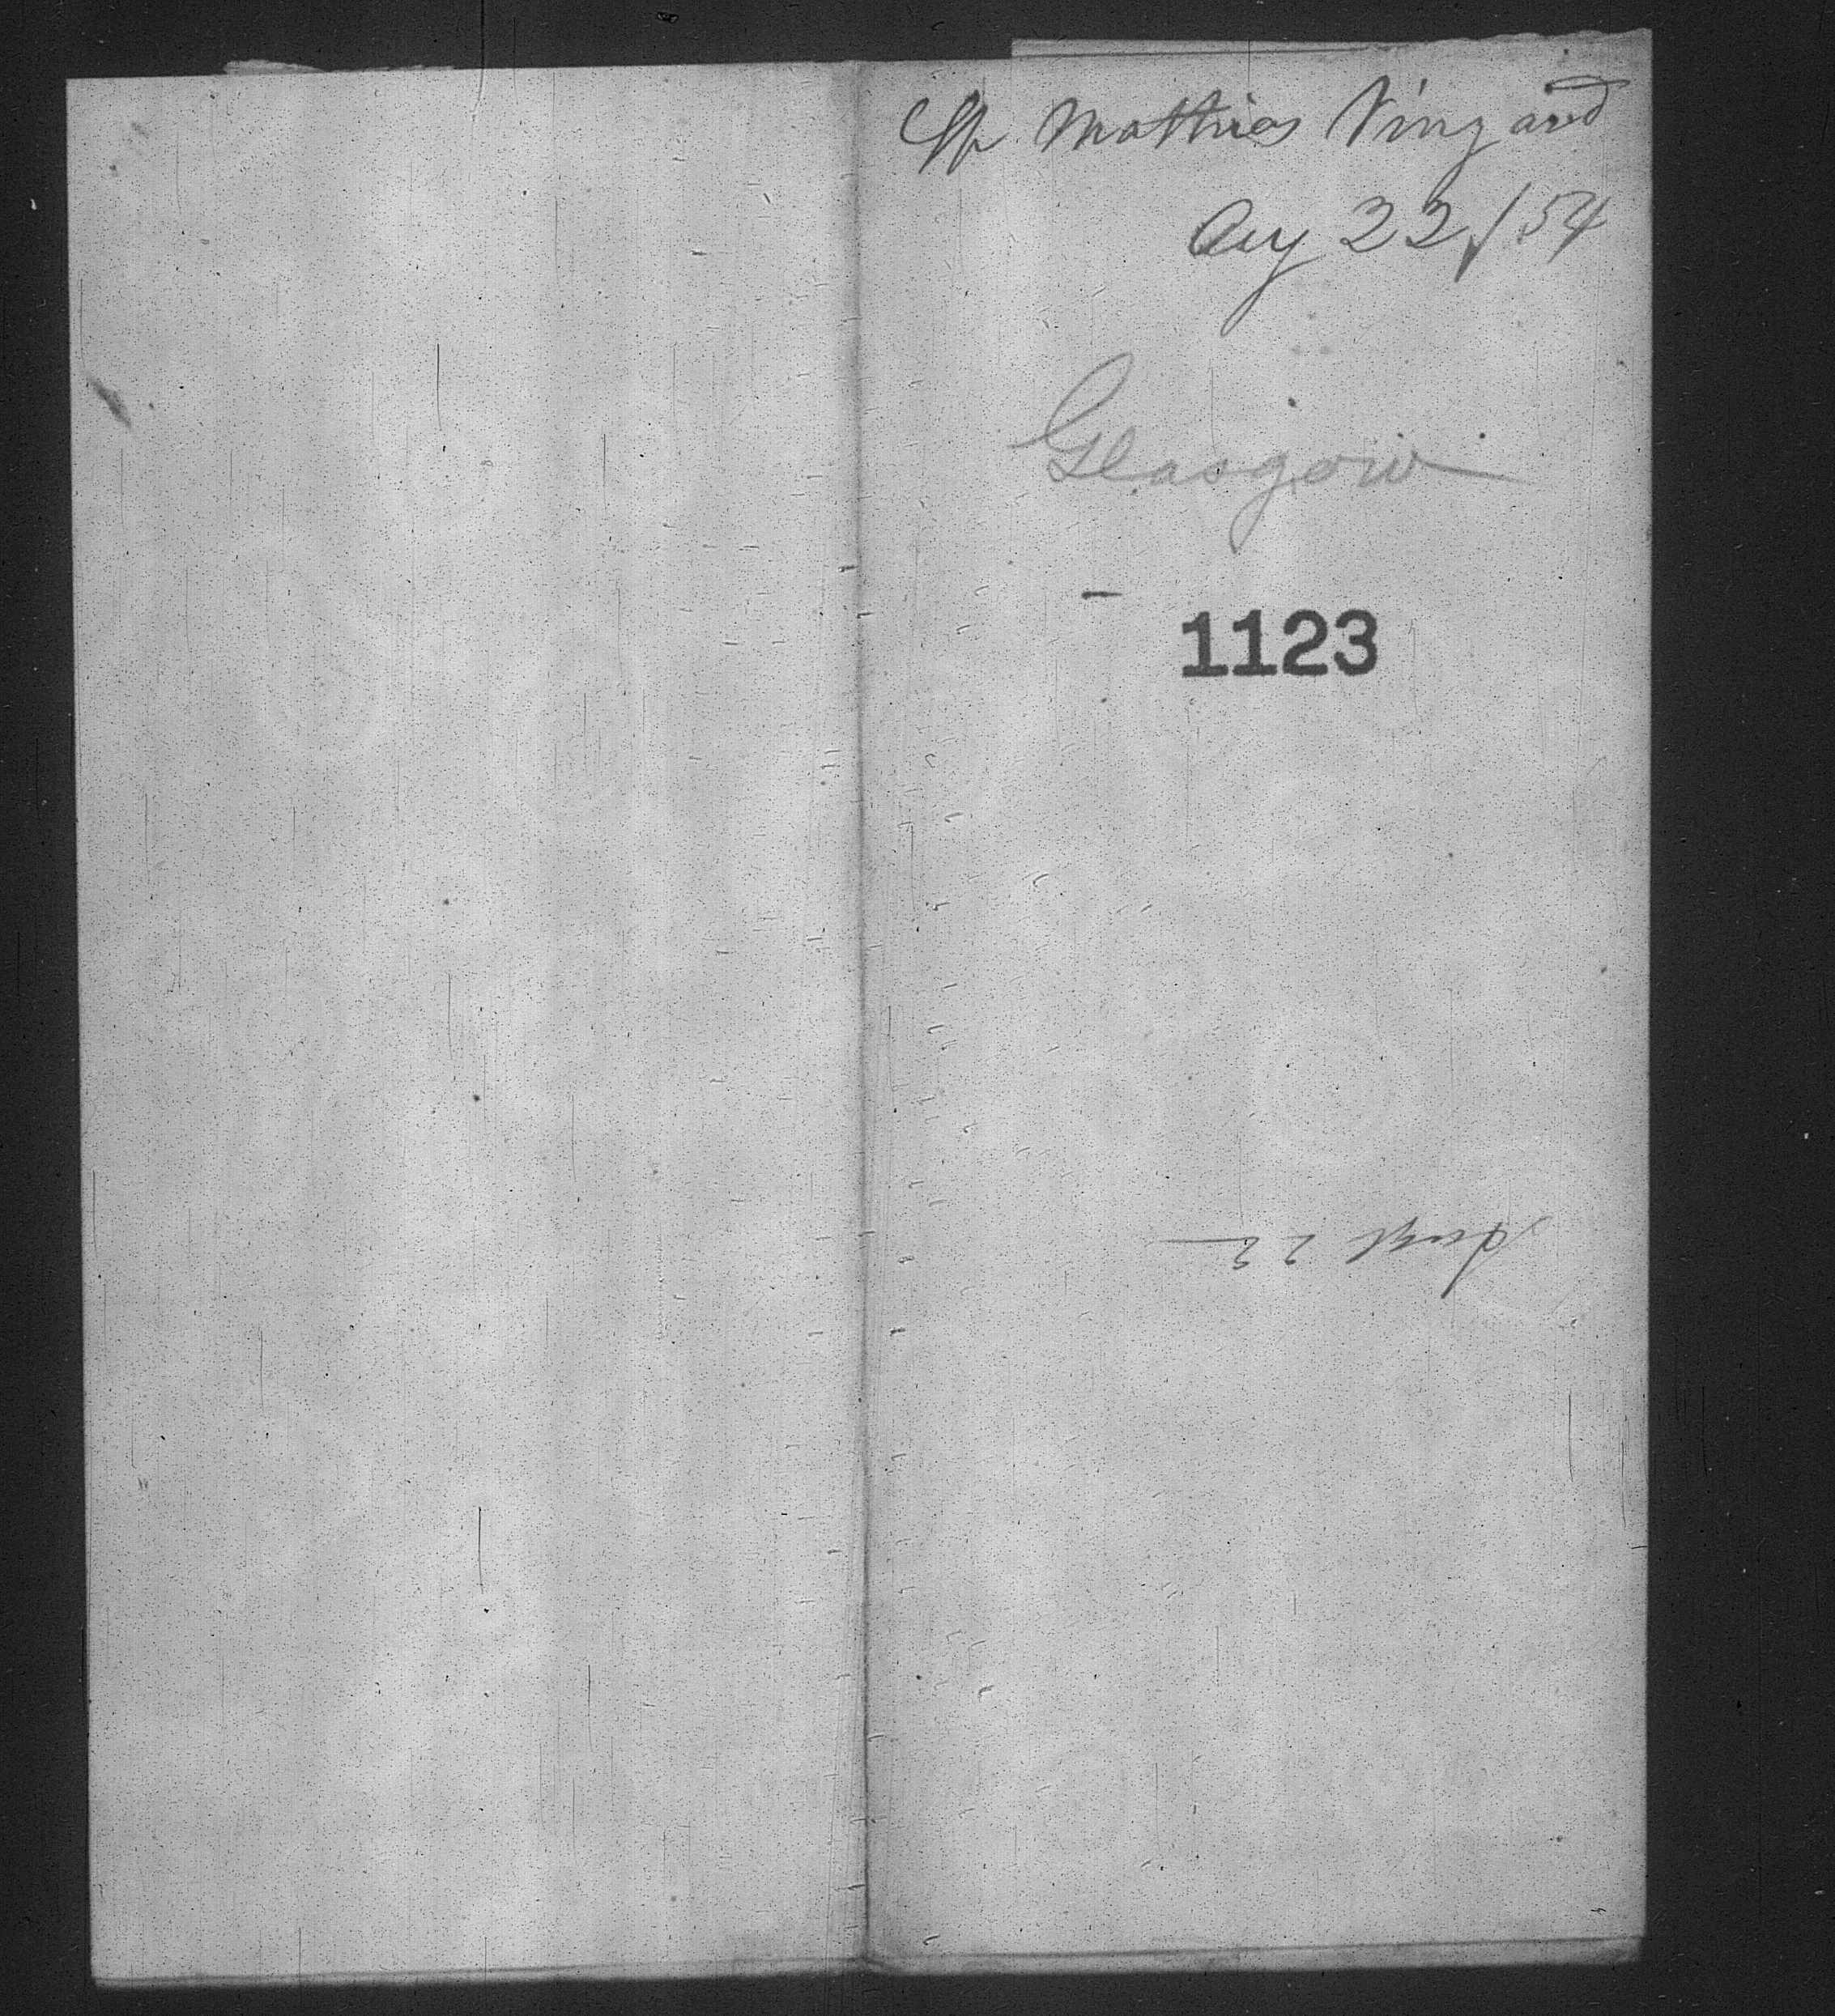 Sp Mathias Vingard
Aug 22/54
Glasgow
1123
Augst 22